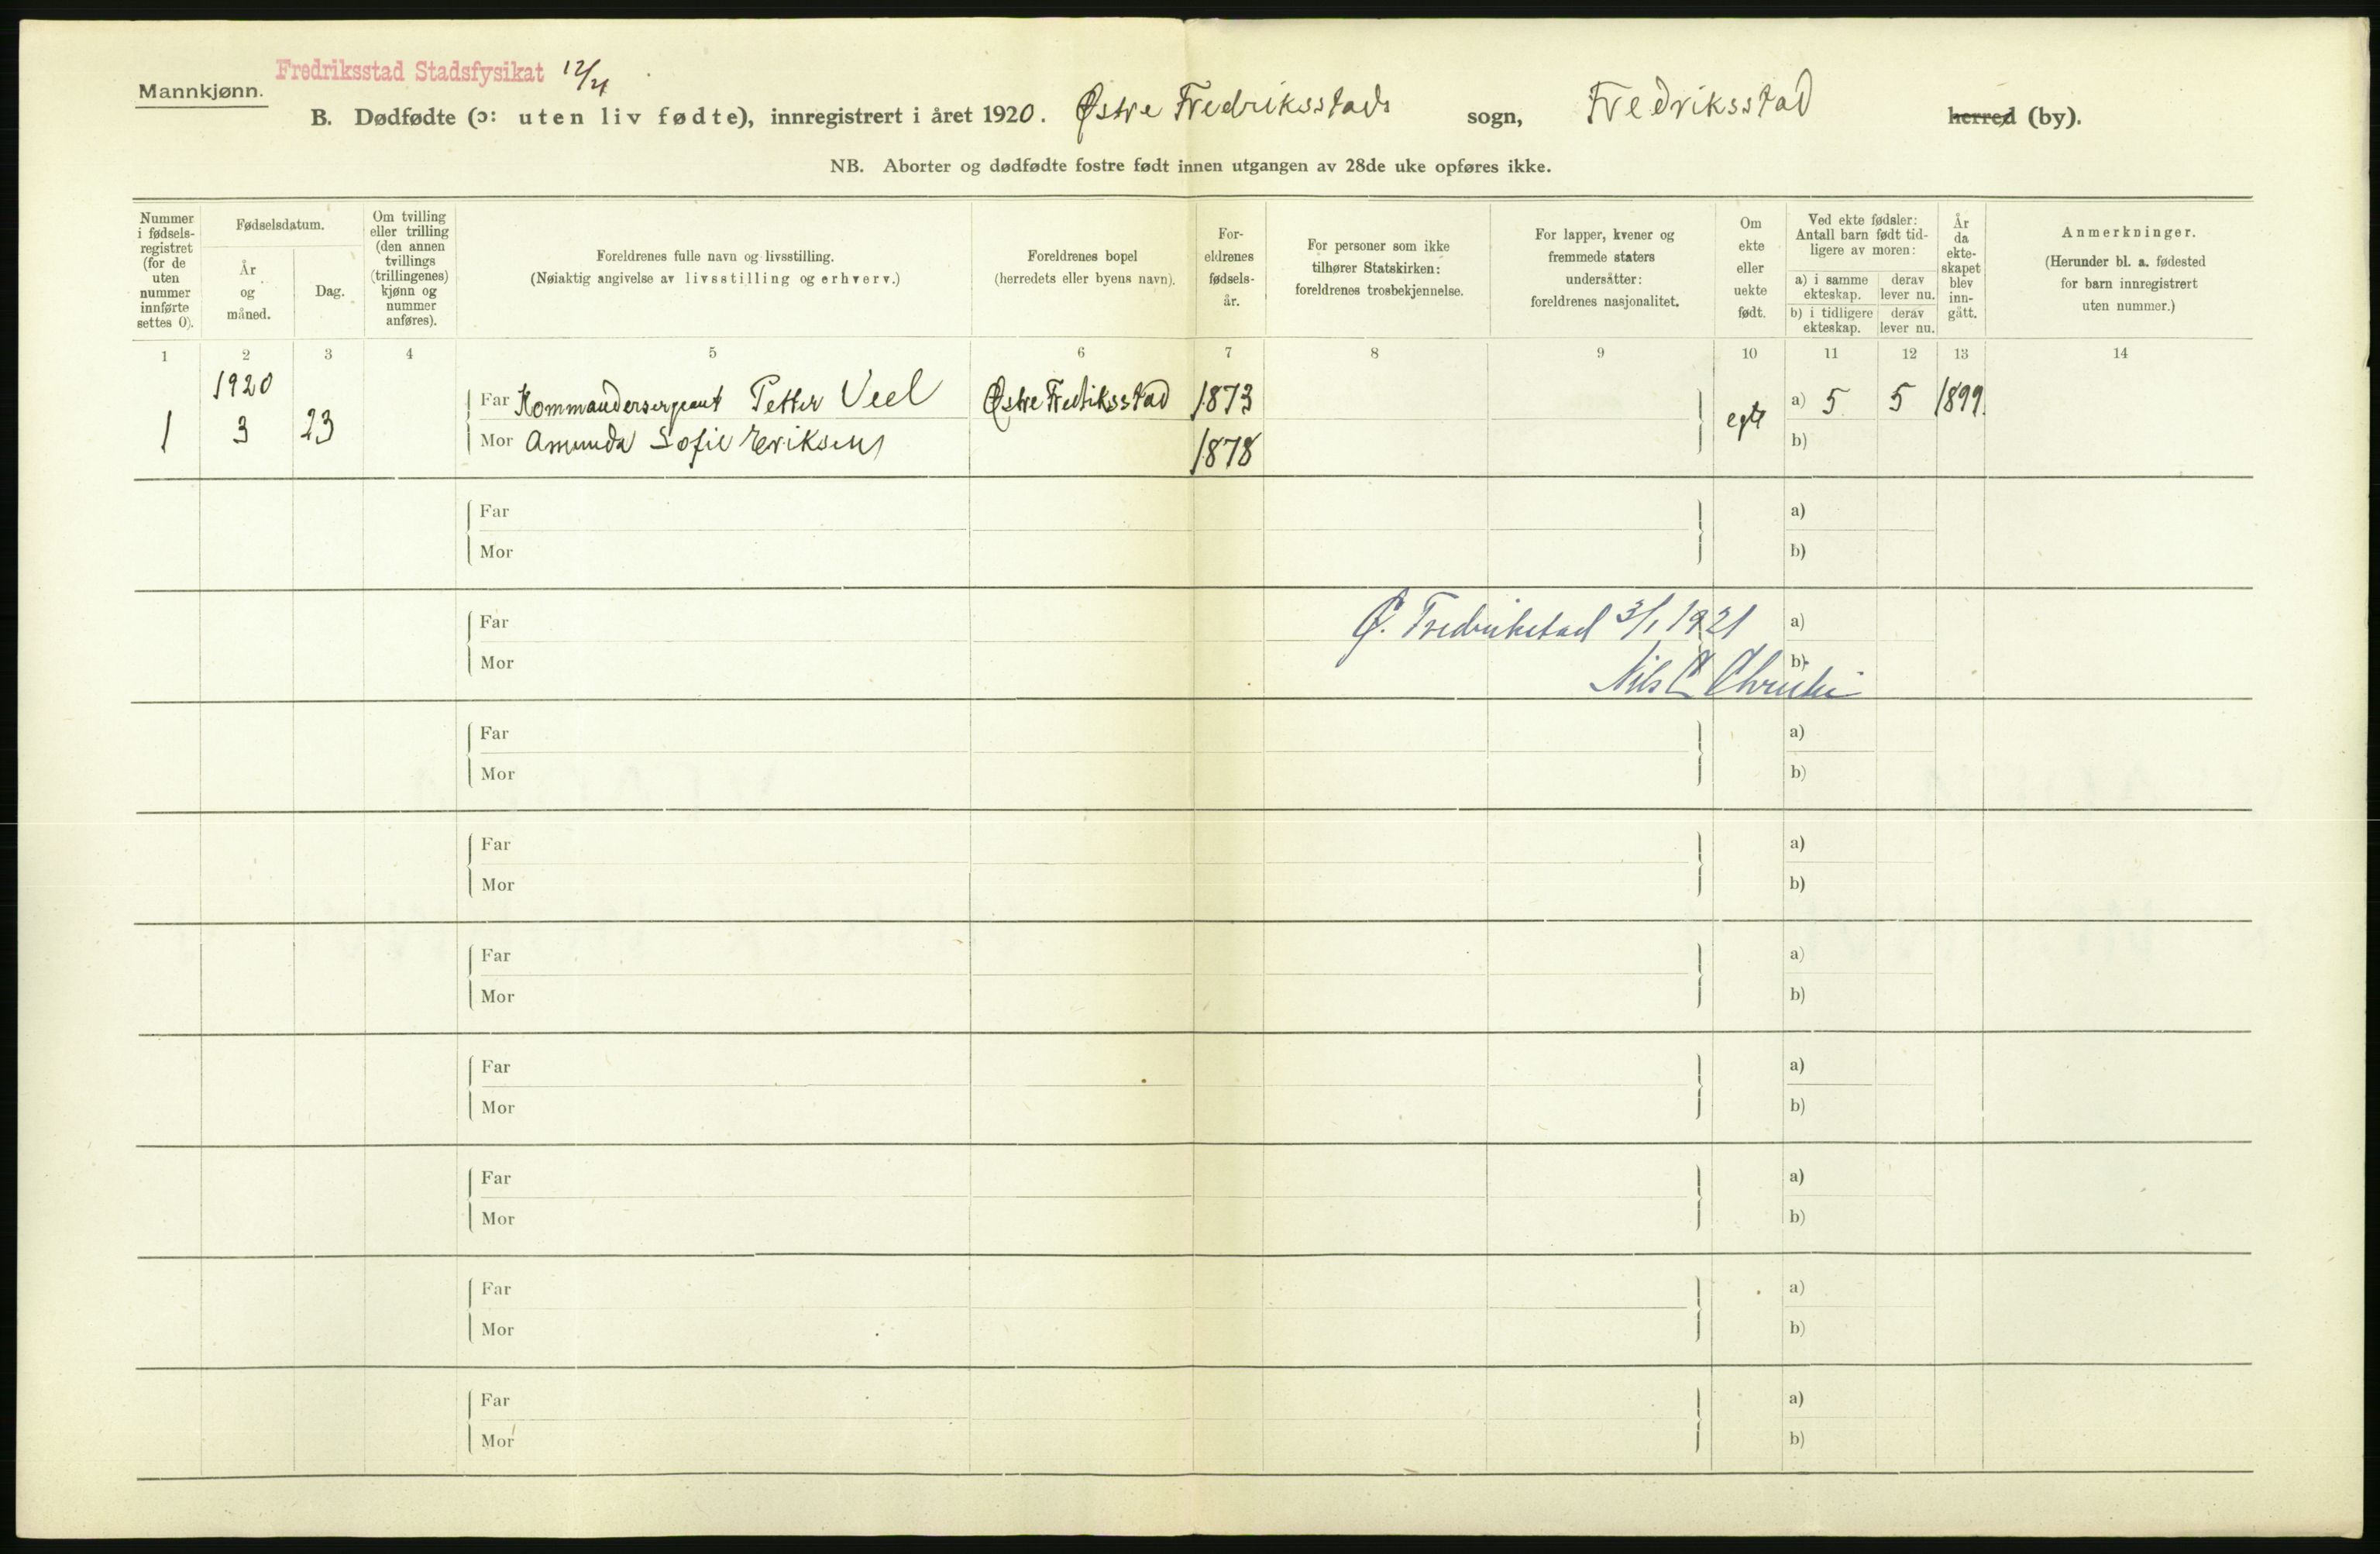 Mannkjønn.
Fredriksstad Stadsfysikat 12/21
B. Dødfødte (ɔ: uten liv fødte), innregistrert i året 1920. Østre Fredriksstads sogn, Fredriksstad herred (by).
NB. Aborter og dødfødte fostre født innen utgangen av 28de uke opføres ikke.
Nummer i fødselsregistret (for de uten nummer innførte settes 0).
Fødselsdatum.
År og måned.
Dag.
Om tvilling eller trilling (den annen tvillings (trillingenes) kjønn og nummer anføres).
Foreldrenes fulle navn og livsstilling.
(Nøiaktig angivelse av livsstilling og erhverv.)
Foreldrenes bopel
(herredets eller byens navn).
Foreldrenes fødselsår.
For personer som ikke tilhører Statskirken: foreldrenes trosbekjennelse.
For lapper, kvener og fremmede staters undersåtter: foreldrenes nasjonalitet.
Om ekte eller uekte født.
Ved ekte fødsler: Antall barn født tidligere av moren:
a) i samme ekteskap.
derav lever nu.
b) i tidligere ekteskap.
derav lever nu.
År da ekteskapet blev inngått.
Anmerkninger.
(Herunder bl. a. fødested for barn innregistrert uten nummer.)
1 2 3 4 5 6 7 8 9 10 11 12 13 14
1920
Far Kommandersergeant Petter Veel Østre Fredriksstad 1873 egte a) 5 5 1899
1 3 23 Mor Amunda Sofie Eriksen 1878 b)
Far a)
Mor b)
Far Ø. Fredrikstad 3/1 1921 a)
Mor Nils C Christie b)
Far a)
Mor b)
Far a)
Mor b)
Far a)
Mor b)
Far a)
Mor b)
Far a)
Mor b)
Far a)
Mor b)
Far a)
Mor b)